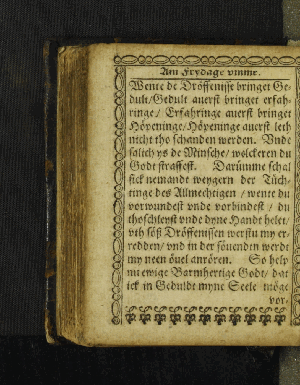 Am Frydage vmme.
Wente de Dröffenisse bringet Ge-
dult/Gedult auerst bringet erfah-
ringe/ Erfahringe auerst bringet
Höpeninge/Höpeninge auerst leth
nicht tho schanden werden. Vnde
salich ys de Minsche/ wolckeren du
Godt straffest. Darümme schal
sick nemandt weygern der Tüch-
tinge des Allmechtigen / wente du
vorwundest vnde vorbindest / du
thoschleyst vnde dyne Handt helet/
vth söß Dröffenissen werstu my er-
redden/ vnd in der söuenden werdt
my neen öuel anrören. So help
nu ewige Barmhertige Godt/ dat
ick in Geduldt myne Seele möge
vor-